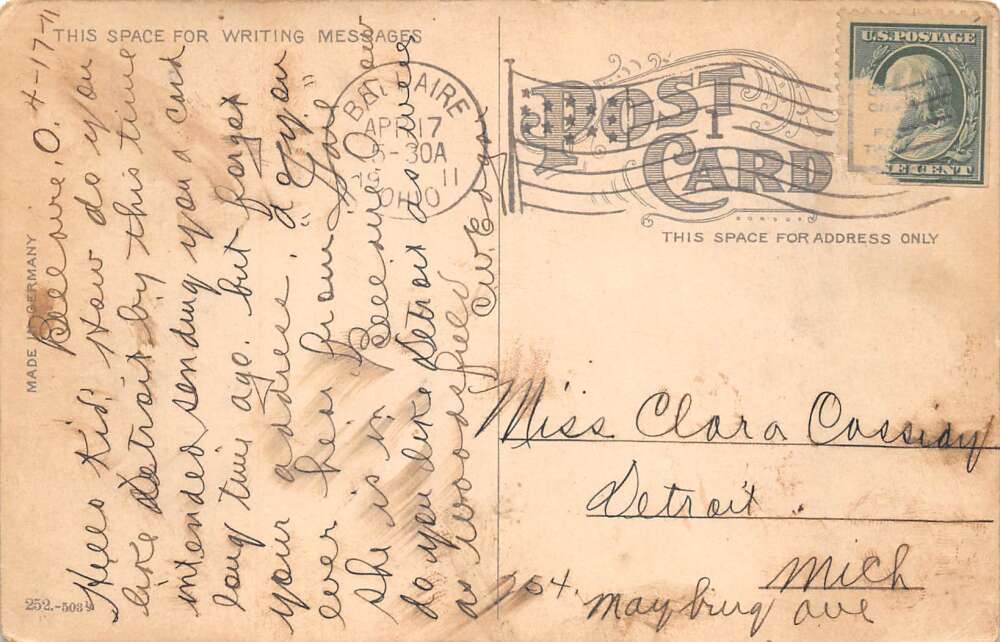 THIS SPACE FOR WRITING MESSAGES
Bellaire, O. 4-17-11
Hello Kid, How do you
like Detroit by this time
intended sending you a card
long time ago. but forget
your address. do you
ever hear from
she is in Bellaire O now
do you like Detroit as well
as Woodsfield
C.W. Edgar
MADE IN GERMANY
252.-5089
BELLAIRE
APR 17
5-30A
11
OHIO
U.S. POSTAGE
ONE CENT
POST CARD
THIS SPACE FOR ADDRESS ONLY
Miss Clara Cassiday
Detroit.
Mich
754. Mayburg ave